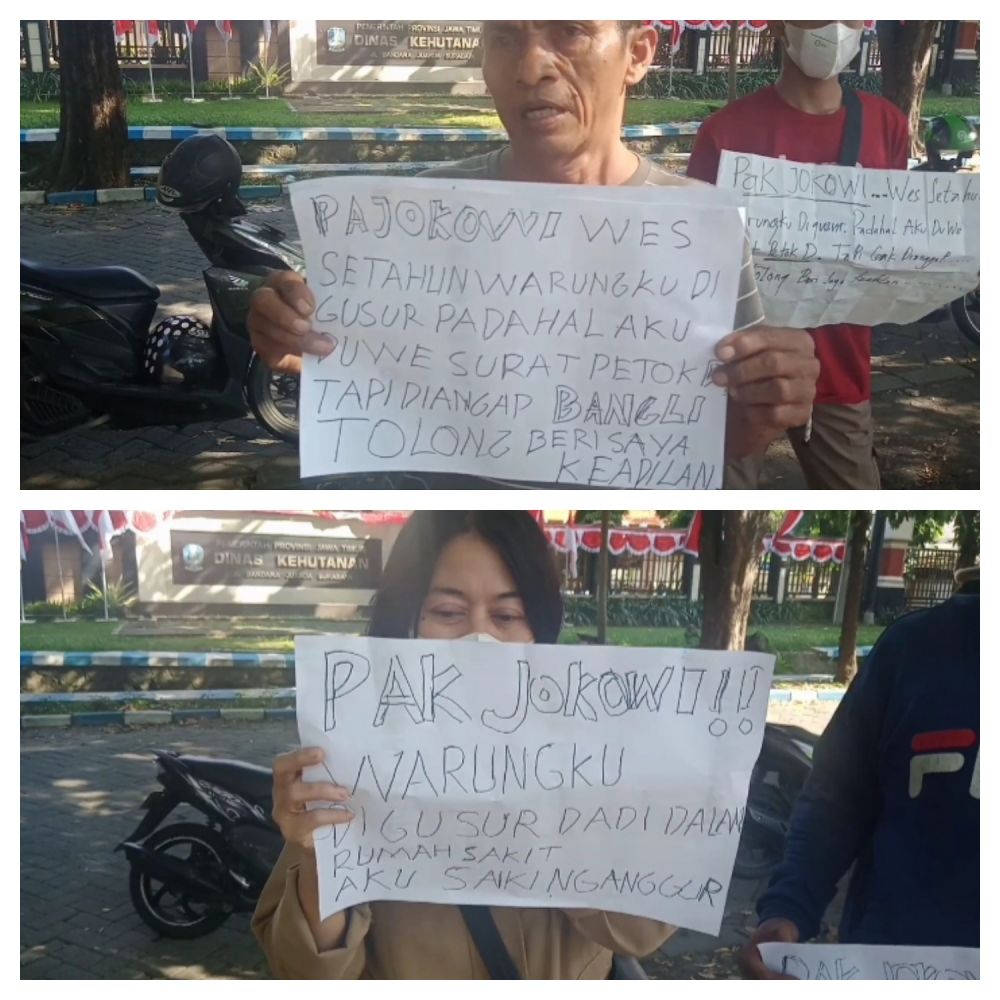 PEMERINTAH PROVINSI JAWA TIMUR
DINAS KEHUTANA
JL. BANDARA JUANDA, SURABAYA
PAJOKOWI WES
SETAHUN WARUNGKU DI
GUSUR PADAHAL AKU
DUWE SURAT PETOK D
TAPI DIANGAP BANGLI
TOLONG BERI SAYA
KEADILAN
Pak JOKOWI...Wes Setahu
rungku Digusur. Padahal Aku DuWe
Petok D. TaPi Gak Dianggap....
olong Beri Saya Keadilan
PEMERINTAH PROVINSI JAWA TIMUR
DINAS KEHUTANAN
JL. BANDARA JUANDA, SURABAYA
PAK JOKOWI!!
WARUNGKU
DIGUSUR DADI DALAN
RUMAH SAKIT
AKU SAIKI NGANGGUR
F
PAK JOKOW